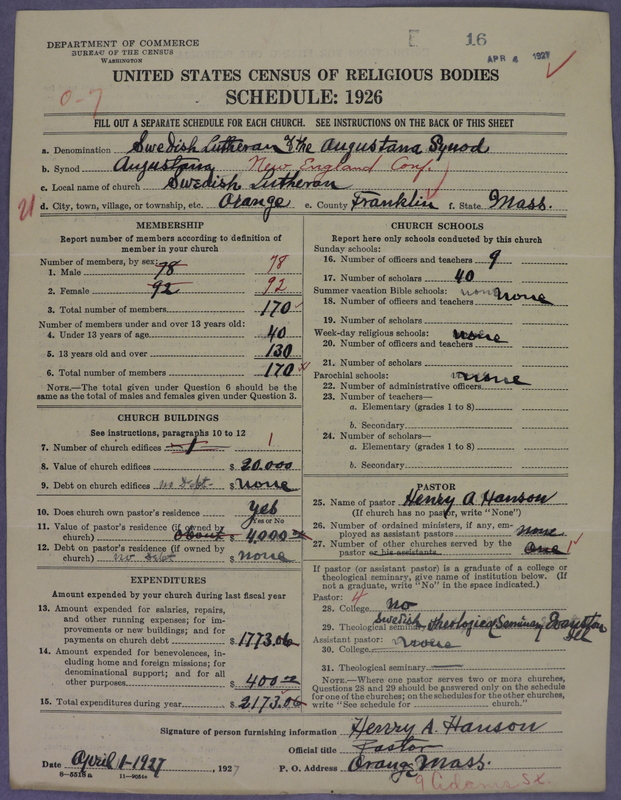 DEPARTMENT OF COMMERCE
BUREAU OF THE CENSUS
WASHINGTON
16
APR 4 1927
UNITED STATES CENSUS OF RELIGIOUS BODIES
SCHEDULE: 1926
0-7
FILL OUT A SEPARATE SCHEDULE FOR EACH CHURCH. SEE INSTRUCTIONS ON THE BACK OF THIS SHEET
a. Denomination Swedish Lutheran of the Augustana Synod
b. Synod Augustana New England Conf.
c. Local name of church Swedish Lutheran
21
d. City, town, village, or township, etc. Orange e. County Franklin f. State Mass.
MEMBERSHIP
Report number of members according to definition of
member in your church
Number of members, by sex:
1. Male 78 78
2. Female 92 92
3. Total number of members 170
Number of members under and over 13 years old:
4. Under 13 years of age 40
5. 13 years old and over 130
6. Total number of members 170
NOTE.—The total given under Question 6 should be the
same as the total of males and females given under Question 3.
CHURCH BUILDINGS
See instructions, paragraphs 10 to 12
7. Number of church edifices 1 1
8. Value of church edifices $ 20.000
9. Debt on church edifices no Debt $ none
10. Does church own pastor's residence? yes
Yes or No
11. Value of pastor's residence (if owned by
church) about $ 4,000
12. Debt on pastor's residence (if owned by
church) no Debt $ none
EXPENDITURES
Amount expended by your church during last fiscal year
13. Amount expended for salaries, repairs,
and other running expenses; for im-
provements or new buildings; and for
payments on church debt $ 1773.06
14. Amount expended for benevolences, in-
cluding home and foreign missions; for
denominational support; and for all
other purposes $ 400
15. Total expenditures during year $ 2173.06
CHURCH SCHOOLS
Report here only schools conducted by this church
Sunday schools:
16. Number of officers and teachers 9
17. Number of scholars 40
Summer vacation Bible schools: none
18. Number of officers and teachers none
19. Number of scholars
Week-day religious schools: none
20. Number of officers and teachers
21. Number of scholars
Parochial schools: none
22. Number of administrative officers
23. Number of teachers—
a. Elementary (grades 1 to 8)
b. Secondary
24. Number of scholars—
a. Elementary (grades 1 to 8)
b. Secondary
PASTOR
25. Name of pastor Henry A Hanson
(If church has no pastor, write "None")
26. Number of ordained ministers, if any, em-
ployed as assistant pastors none
27. Number of other churches served by the
pastor or his assistants One 1
If pastor (or assistant pastor) is a graduate of a college or
theological seminary, give name of institution below. (If
not a graduate, write "No" in the space indicated.)
Pastor: 4
28. College no
29. Theological seminary Swedish Theological Seminary Evanston Ill
Assistant pastor:
30. College none
31. Theological seminary
NOTE.—Where one pastor serves two or more churches,
Questions 28 and 29 should be answered only on the schedule
for one of the churches; on the schedules for the other churches,
write "See schedule for church."
Signature of person furnishing information Henry A. Hanson
Official title Pastor
Date April 1-1927, 1927 P. O. Address Orange Mass.
9 Adams St.
8-5518a 11-9054a